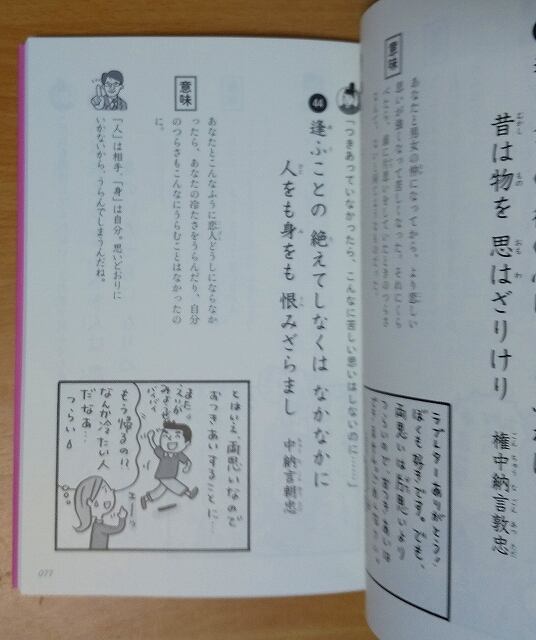 昔は物を 思はざりけり
権中納言敦忠
意味
あなたと男女の仲になってから、より恋しい
思いが強くなって苦しくなった。それにくら
ラブレターありがとう。
ぼくも好きです。でも、
両思いは片思いより
「つきあっていなかったら、こんなに苦しい思いはしないのに……」
44
逢ふことの 絶えてしなくは なかなかに
人をも身をも 恨みざらまし
中納言朝忠
意味
あなたとこんなふうに恋人どうしにならなか
ったら、あなたの冷たさをうらんだり、自分
のつらさもこんなにうらむことはなかったの
に。
「人」は相手、「身」は自分。思いどおりに
いかないから、うらんでしまうんだね。
とはいえ、両思いなので
おつきあいすることに…
また。
えいが
みようね
バイバイ
もう帰るの!?
なんか冷たい人
だなあ…
つらい
えーっ
077